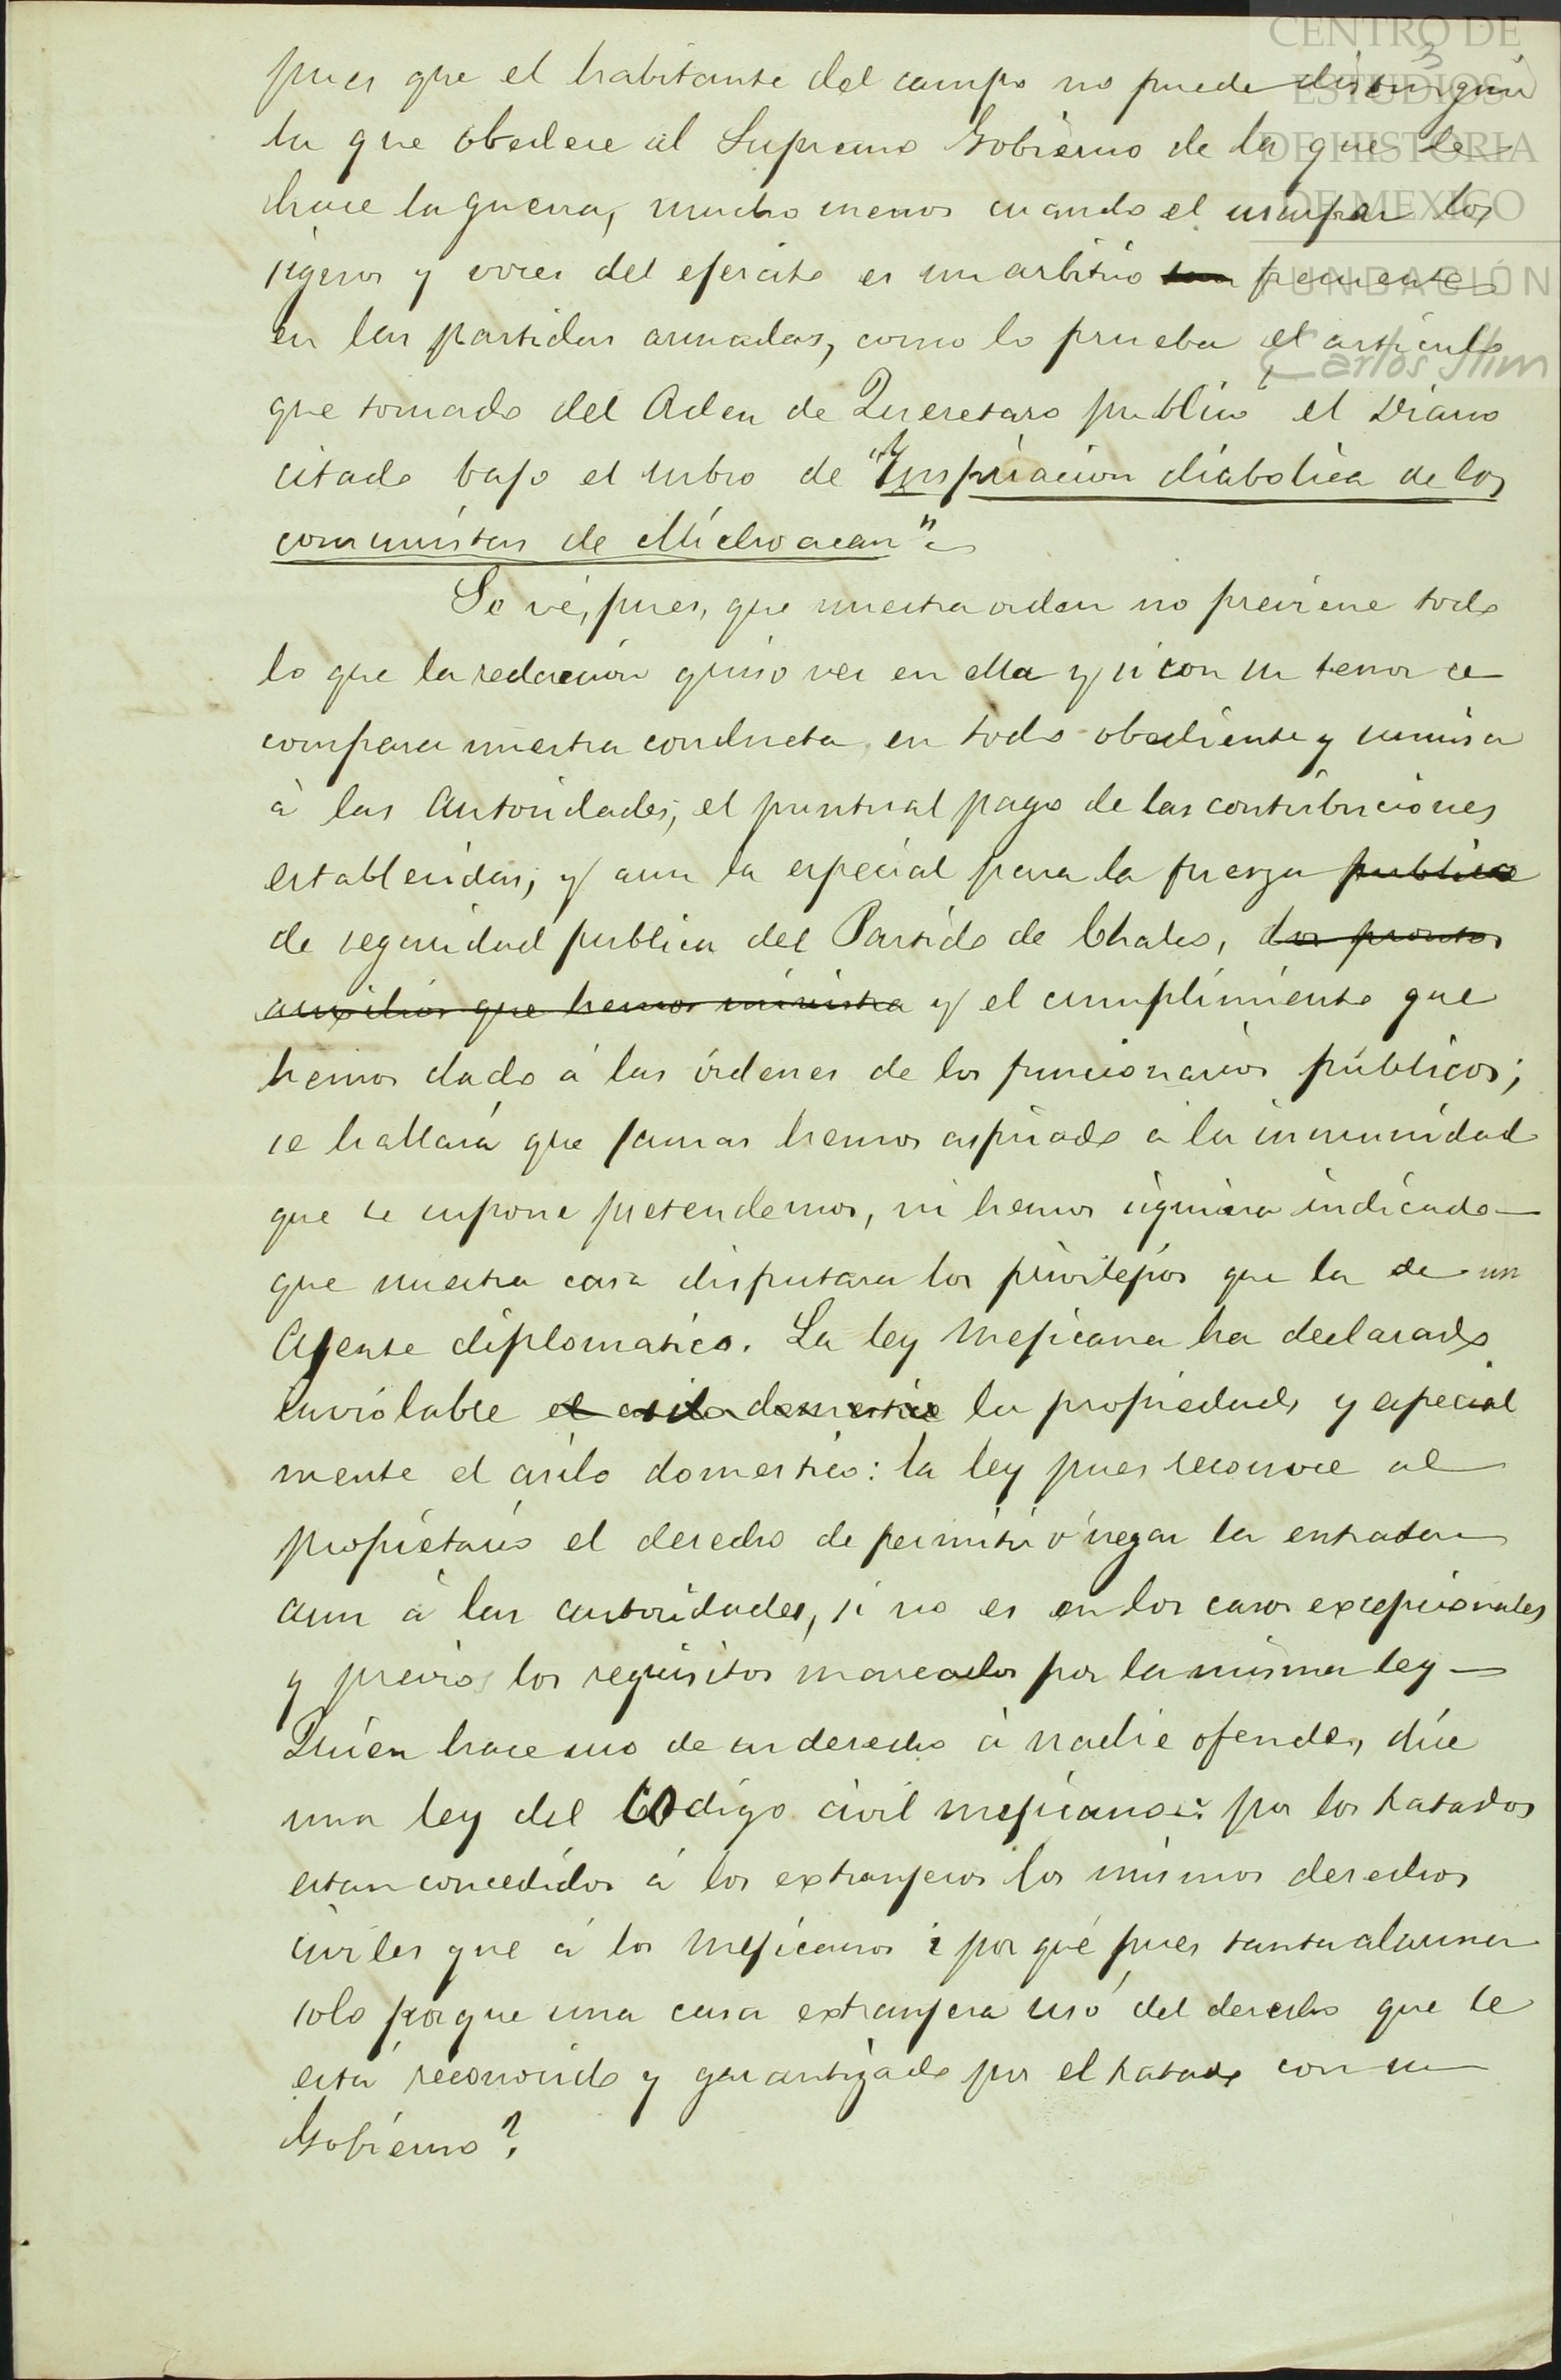 CENTRO DE
ESTUDIOS
DE HISTORIA
DE MEXICO
FUNDACIÓN
Carlos Slim
3
pues que el habitante del campo no puede distinguir
la que obedece al Supremo Gobierno de la que le
hace la guerra, mucho menos cuando el usurpar los
signos y voces del ejercito es un arbitrio tan frecuente
en las partidas armadas, como lo prueba el articulo
que tomado del Orden de Queretaro publicó el Diario
citado bajo el rubro de "Inspiracion diabolica de los
comunistas de Michoacan"
Se vé, pues, que nuestra orden no previene todo
lo que la redaccion quiso ver en ella y si con su tenor se
compara nuestra conducta en todo obediente y sumisa
à las Autoridades, el puntual pago de las contribuciones
establecidas, y aun la especial para la fuerza publica
de seguridad publica del Partido de Chalco, los prontos
auxilios que hemos ministra y el cumplimiento que
hemos dado á las órdenes de los funcionarios públicos;
se hallará que jamas hemos aspirado á la inmunidad
que se supone pretendemos, ni hemos siquiera indicado
que nuestra casa disfrutara los privilejios que la de un
Ajente diplomatico. La ley mejicana ha declarado
inviolable el asilo domestico la propiedad y especial
mente el asilo domestico: la ley pues reconoce al
propietario el derecho de permitir ó negar la entrada
aun à las autoridades, si no es en los casos excepcionales
y previos los requisitos marcados por la misma ley
Quien hace uso de su derecho à nadie ofende, dice
una ley del Codigo civil mejicano: por los tratados
estan concedidos á los extranjeros los mismos derechos
civiles que á los mejicanos ¿por qué pues tanta alarma
solo porque una casa extranjera usó del derecho que le
está reconocido y garantizado por el tratado con su
Gobierno?